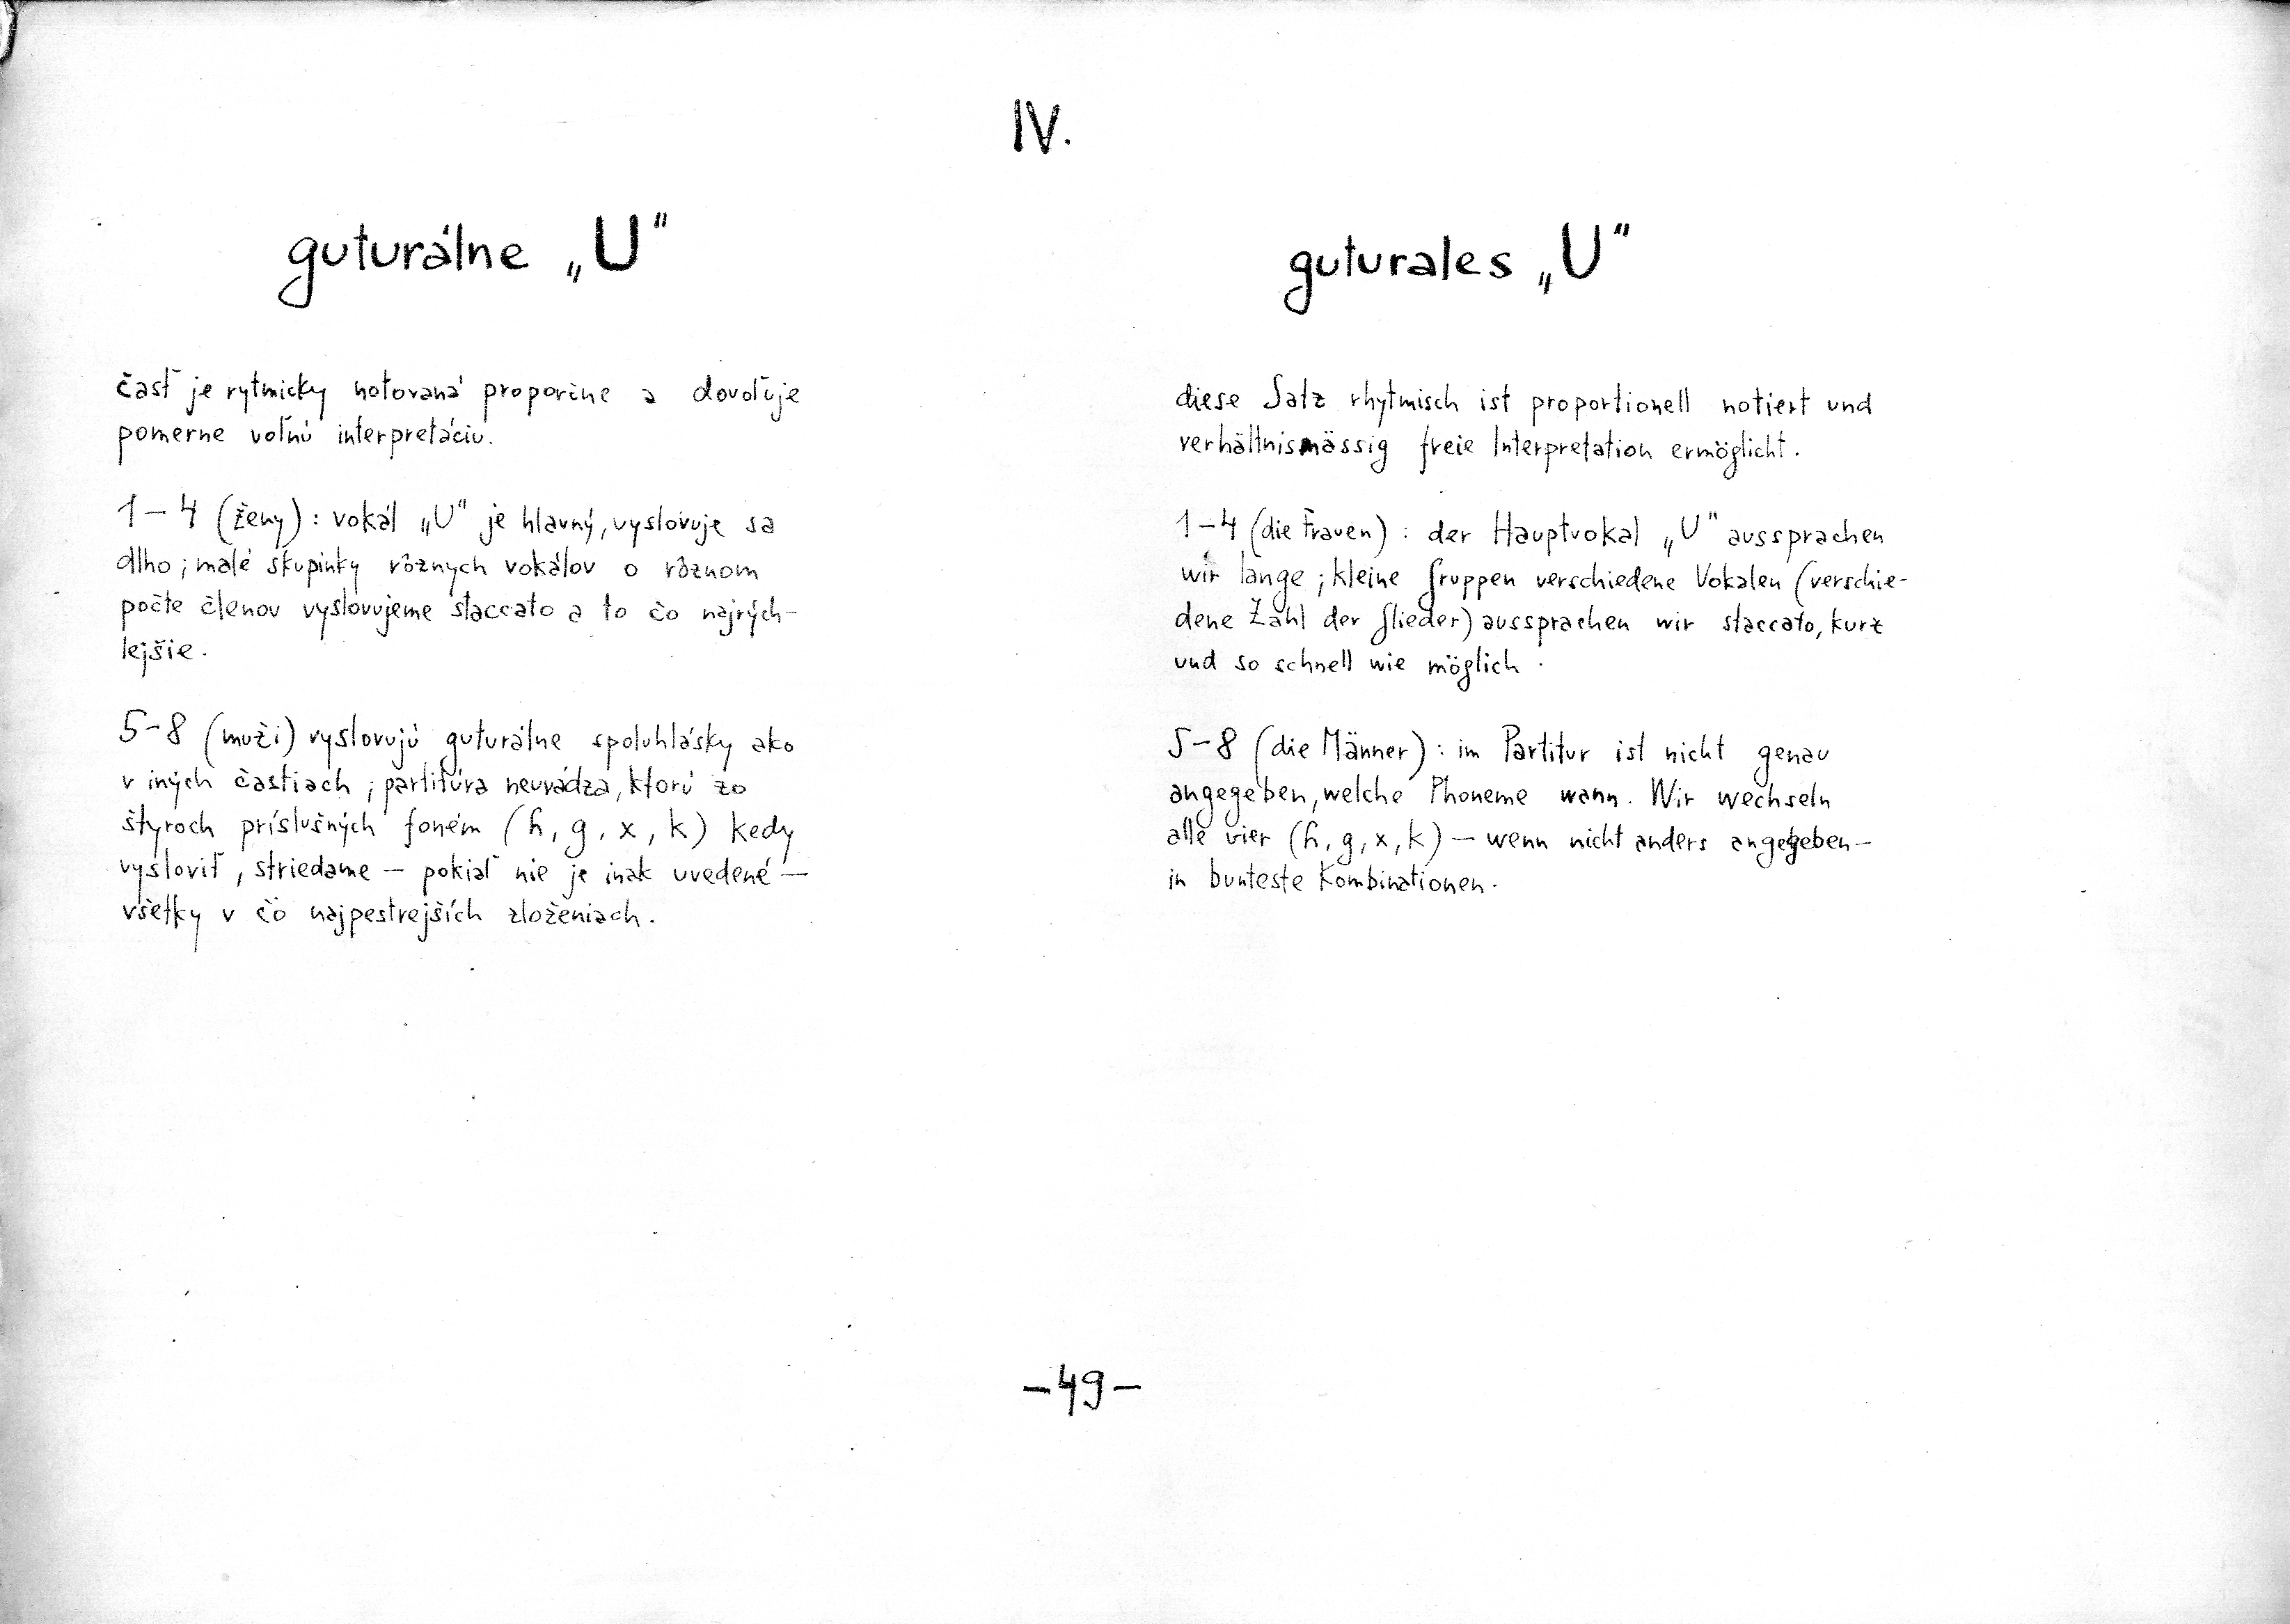 IV.
guturálne „U"
časť je rytmicky notovaná proporčne a dovoľuje
pomerne voľnú interpretáciu.
1–4 (ženy): vokál „U" je hlavný, vyslovuje sa
dlho; malé skupinky rôznych vokálov o rôznom
počte členov vyslovujeme staccato a to čo najrých-
lejšie.
5–8 (muži) vyslovujú guturálne spoluhlásky ako
v iných častiach; partitúra neuvádza, ktorú zo
štyroch príslušných foném (h, g, x, k) kedy
vysloviť, striedame – pokiaľ nie je inak uvedené –
všetky v čo najpestrejších zloženiach.
guturales „U"
diese Satz rhytmisch ist proportionell notiert und
verhältnismässig freie Interpretation ermöglicht.
1–4 (die Frauen): der Hauptvokal „U" aussprachen
wir lange; kleine Gruppen verschiedene Vokalen (verschie-
dene Zahl der Glieder) aussprachen wir staccato, kurz
und so schnell wie möglich.
5–8 (die Männer): im Partitur ist nicht genau
angegeben, welche Phoneme wann. Wir wechseln
alle vier (h, g, x, k) – wenn nicht anders angegeben –
in bunteste Kombinationen.
–49–